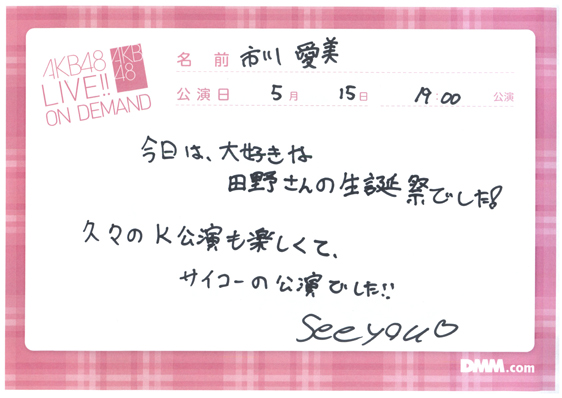 AKB48
LIVE!!
ON DEMAND
AKB
48
名前 市川 愛美
公演日 5月 15日 19:00 公演
今日は、大好きな
田野さんの生誕祭でした!
久々のK公演も楽しくて、
サイコーの公演でした!!
See you♡
DMM.com